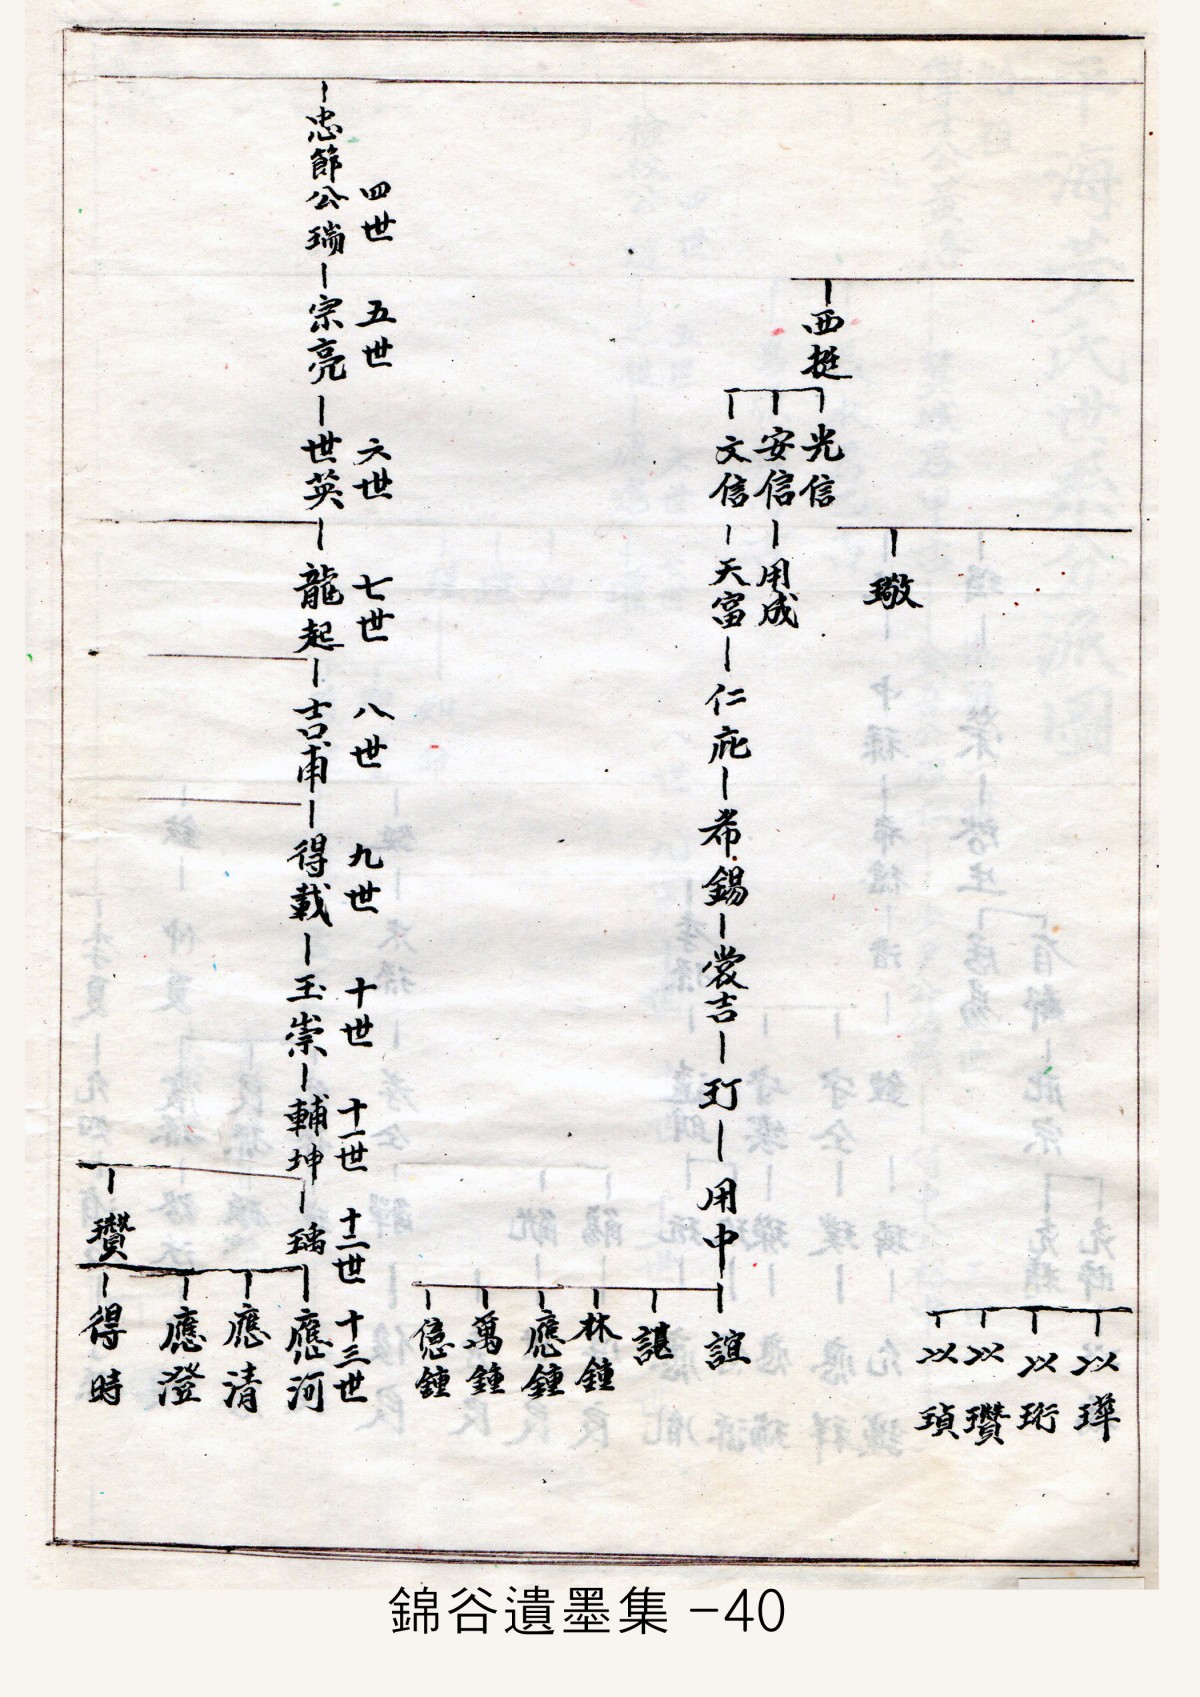 西挺
光信
安信
用成
文信
天富
仁庇
希錫
裳吉
玎
用中
誼
諶
林鍾
應鍾
萬鍾
億鍾
璥
以瑋
以珩
以瓚
以瑱
四世
五世
六世
七世
八世
九世
十世
十一世
十二世
十三世
忠節公瑞
宗亮
世英
龍起
吉甫
得載
玉崇
輔坤
瑀
應河
應清
應澄
瓚
得時
錦谷遺墨集 -40